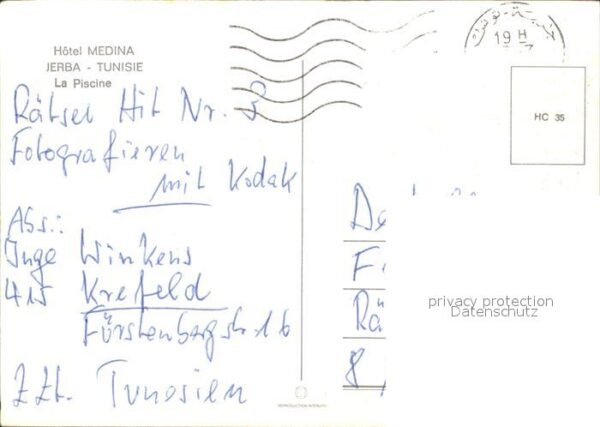 Hôtel MEDINA
JERBA - TUNISIE
La Piscine
Rätsel Hit Nr. 5
Fotografieren
mit Kodak
Abs.:
Inge Winkens
415 Krefeld
Fürstenbergstr. 16
z.Zt. Tunesien
19 H
HC 35
De
F
Rä
8
privacy protection
Datenschutz